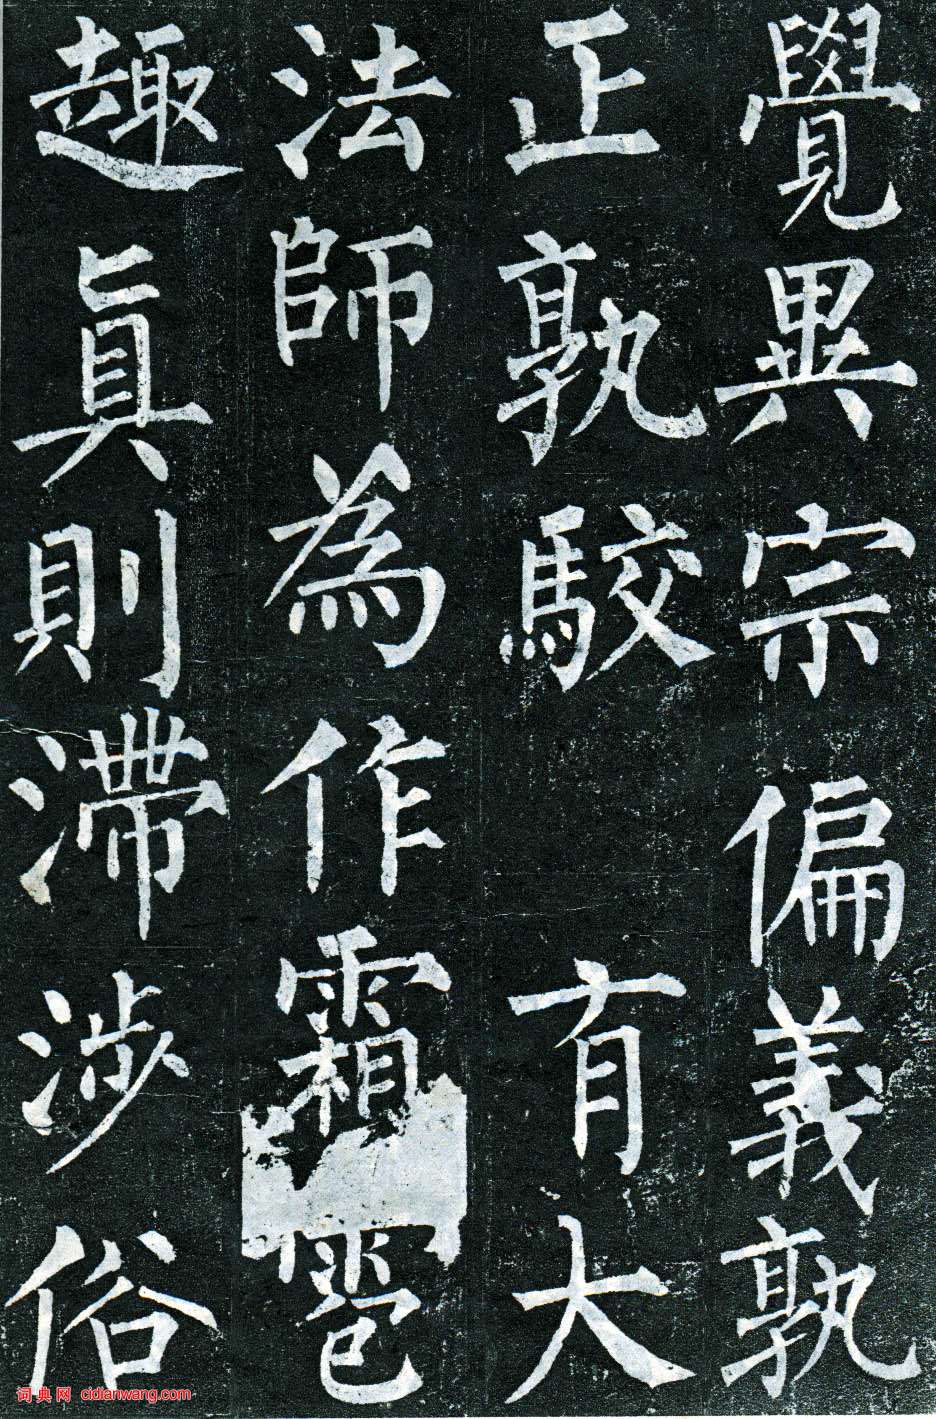 覺異宗偏義孰
正孰駮有大
法師為作霜雹
趣真則滯涉俗
词典网 cidianwang.com